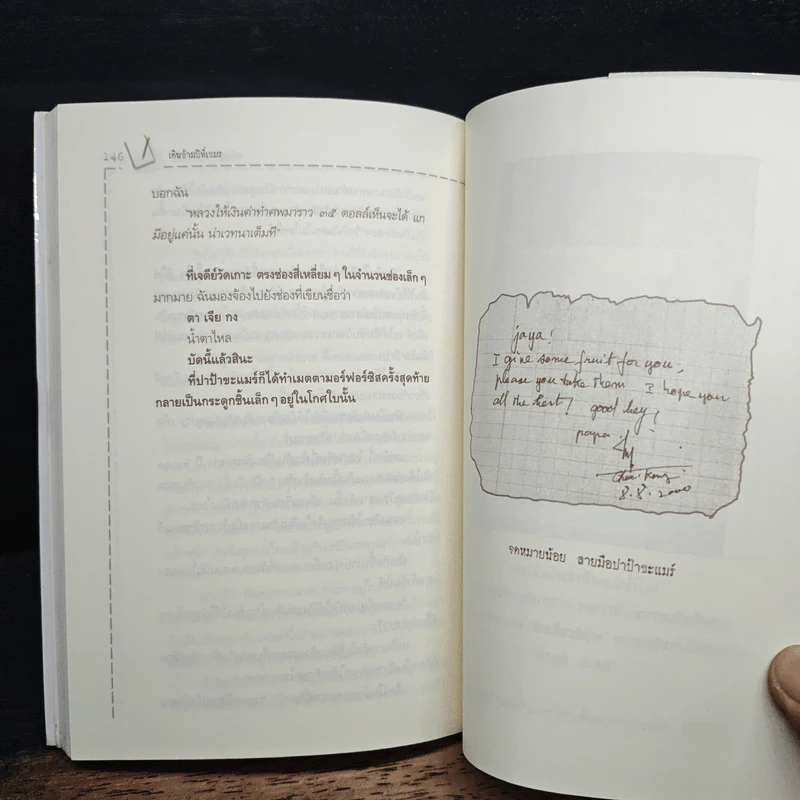 146
เดินข้ามปีที่เขมร
บอกฉัน
"หลวงให้เงินค่าทำศพมาราว ๓๕ ดอลล์เห็นจะได้ แก
มีอยู่แค่นั้น น่าเวทนาเต็มที"
ที่เจดีย์วัดเกาะ ตรงช่องสี่เหลี่ยม ๆ ในจำนวนช่องเล็ก ๆ
มากมาย ฉันมองจ้องไปยังช่องที่เขียนชื่อว่า
ตา เจีย กง
น้ำตาไหล
บัดนี้แล้วสินะ
ที่ปาป้าขะแมร์ก็ได้ทำเมตตามอร์ฟอร์ซิสครั้งสุดท้าย
กลายเป็นกระดูกชิ้นเล็ก ๆ อยู่ในโกศใบนั้น
jaya!
I give some fruit for you,
please you take them I hope you
all the best! good bey!
papa
8.8.2000
จดหมายน้อย ลายมือปาป้าขะแมร์